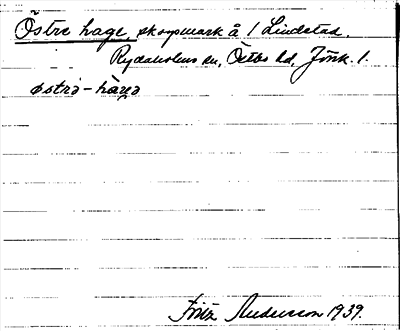 Östre hage, skogsmark å 1 Lindstad.
Rydaholms sn, Östbo hd, Jönk. l.
østrə-hàɣə
Fritz Andersson 1939.